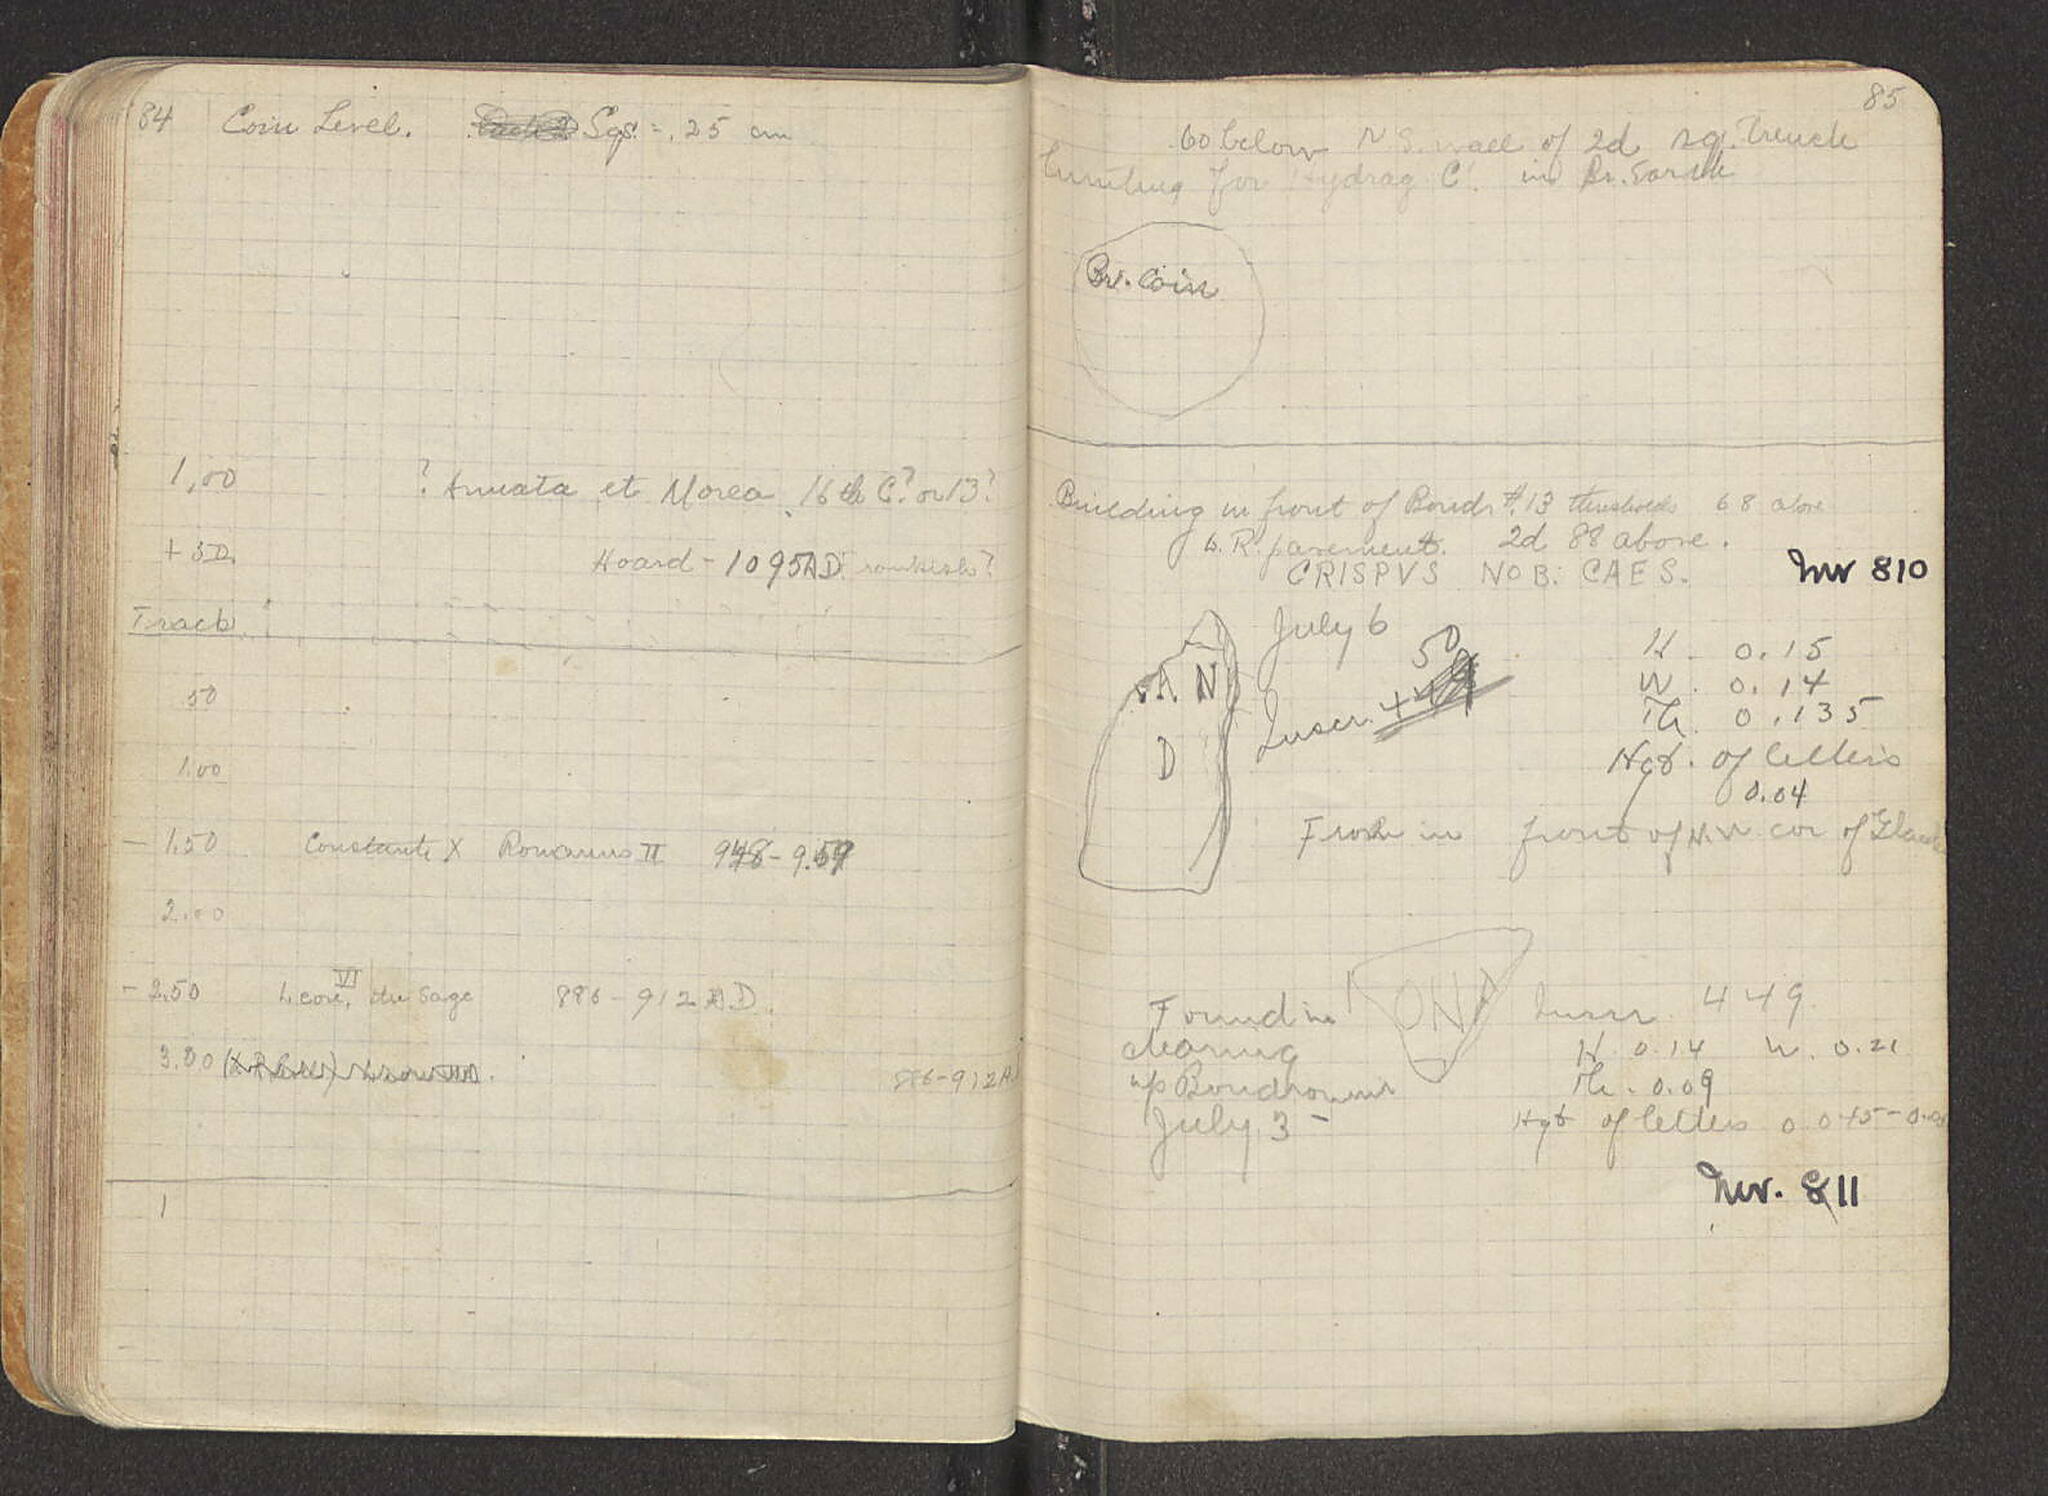 84 Coin Level. Sqs. = .25 cm
1,00 ? Armata et Morea 16th C? or 13?
+ 50 Hoard - 1095 A.D.
Track
50
1.00
- 1.50 Constante X Romanus II 948 - 9.59
2.00
- 2.50 Leon VI, the Sage 886 - 912 A.D.
3.00
886-912 A.D
1
85
.60 below N.S. wall of 2d sq. trench
hunting for Hydrag C. in
Br. Coin
Building in front of Boudr #.13 thresholds 68 above
G. R. pavement. 2d 88 above.
CRISPVS NOB. CAES.
Inv 810
July 6
A N
D
Inscr. 50
H 0.15
W. 0.14
Th. 0.135
Hgt. of letters
0.04
From in front of N.W cor of
ON
Found in
clearing
up
July 3 -
Inscr. 449
H 0.14 W. 0.21
Th. 0.09
Hgt of letters 0.045 -
Inv. 811